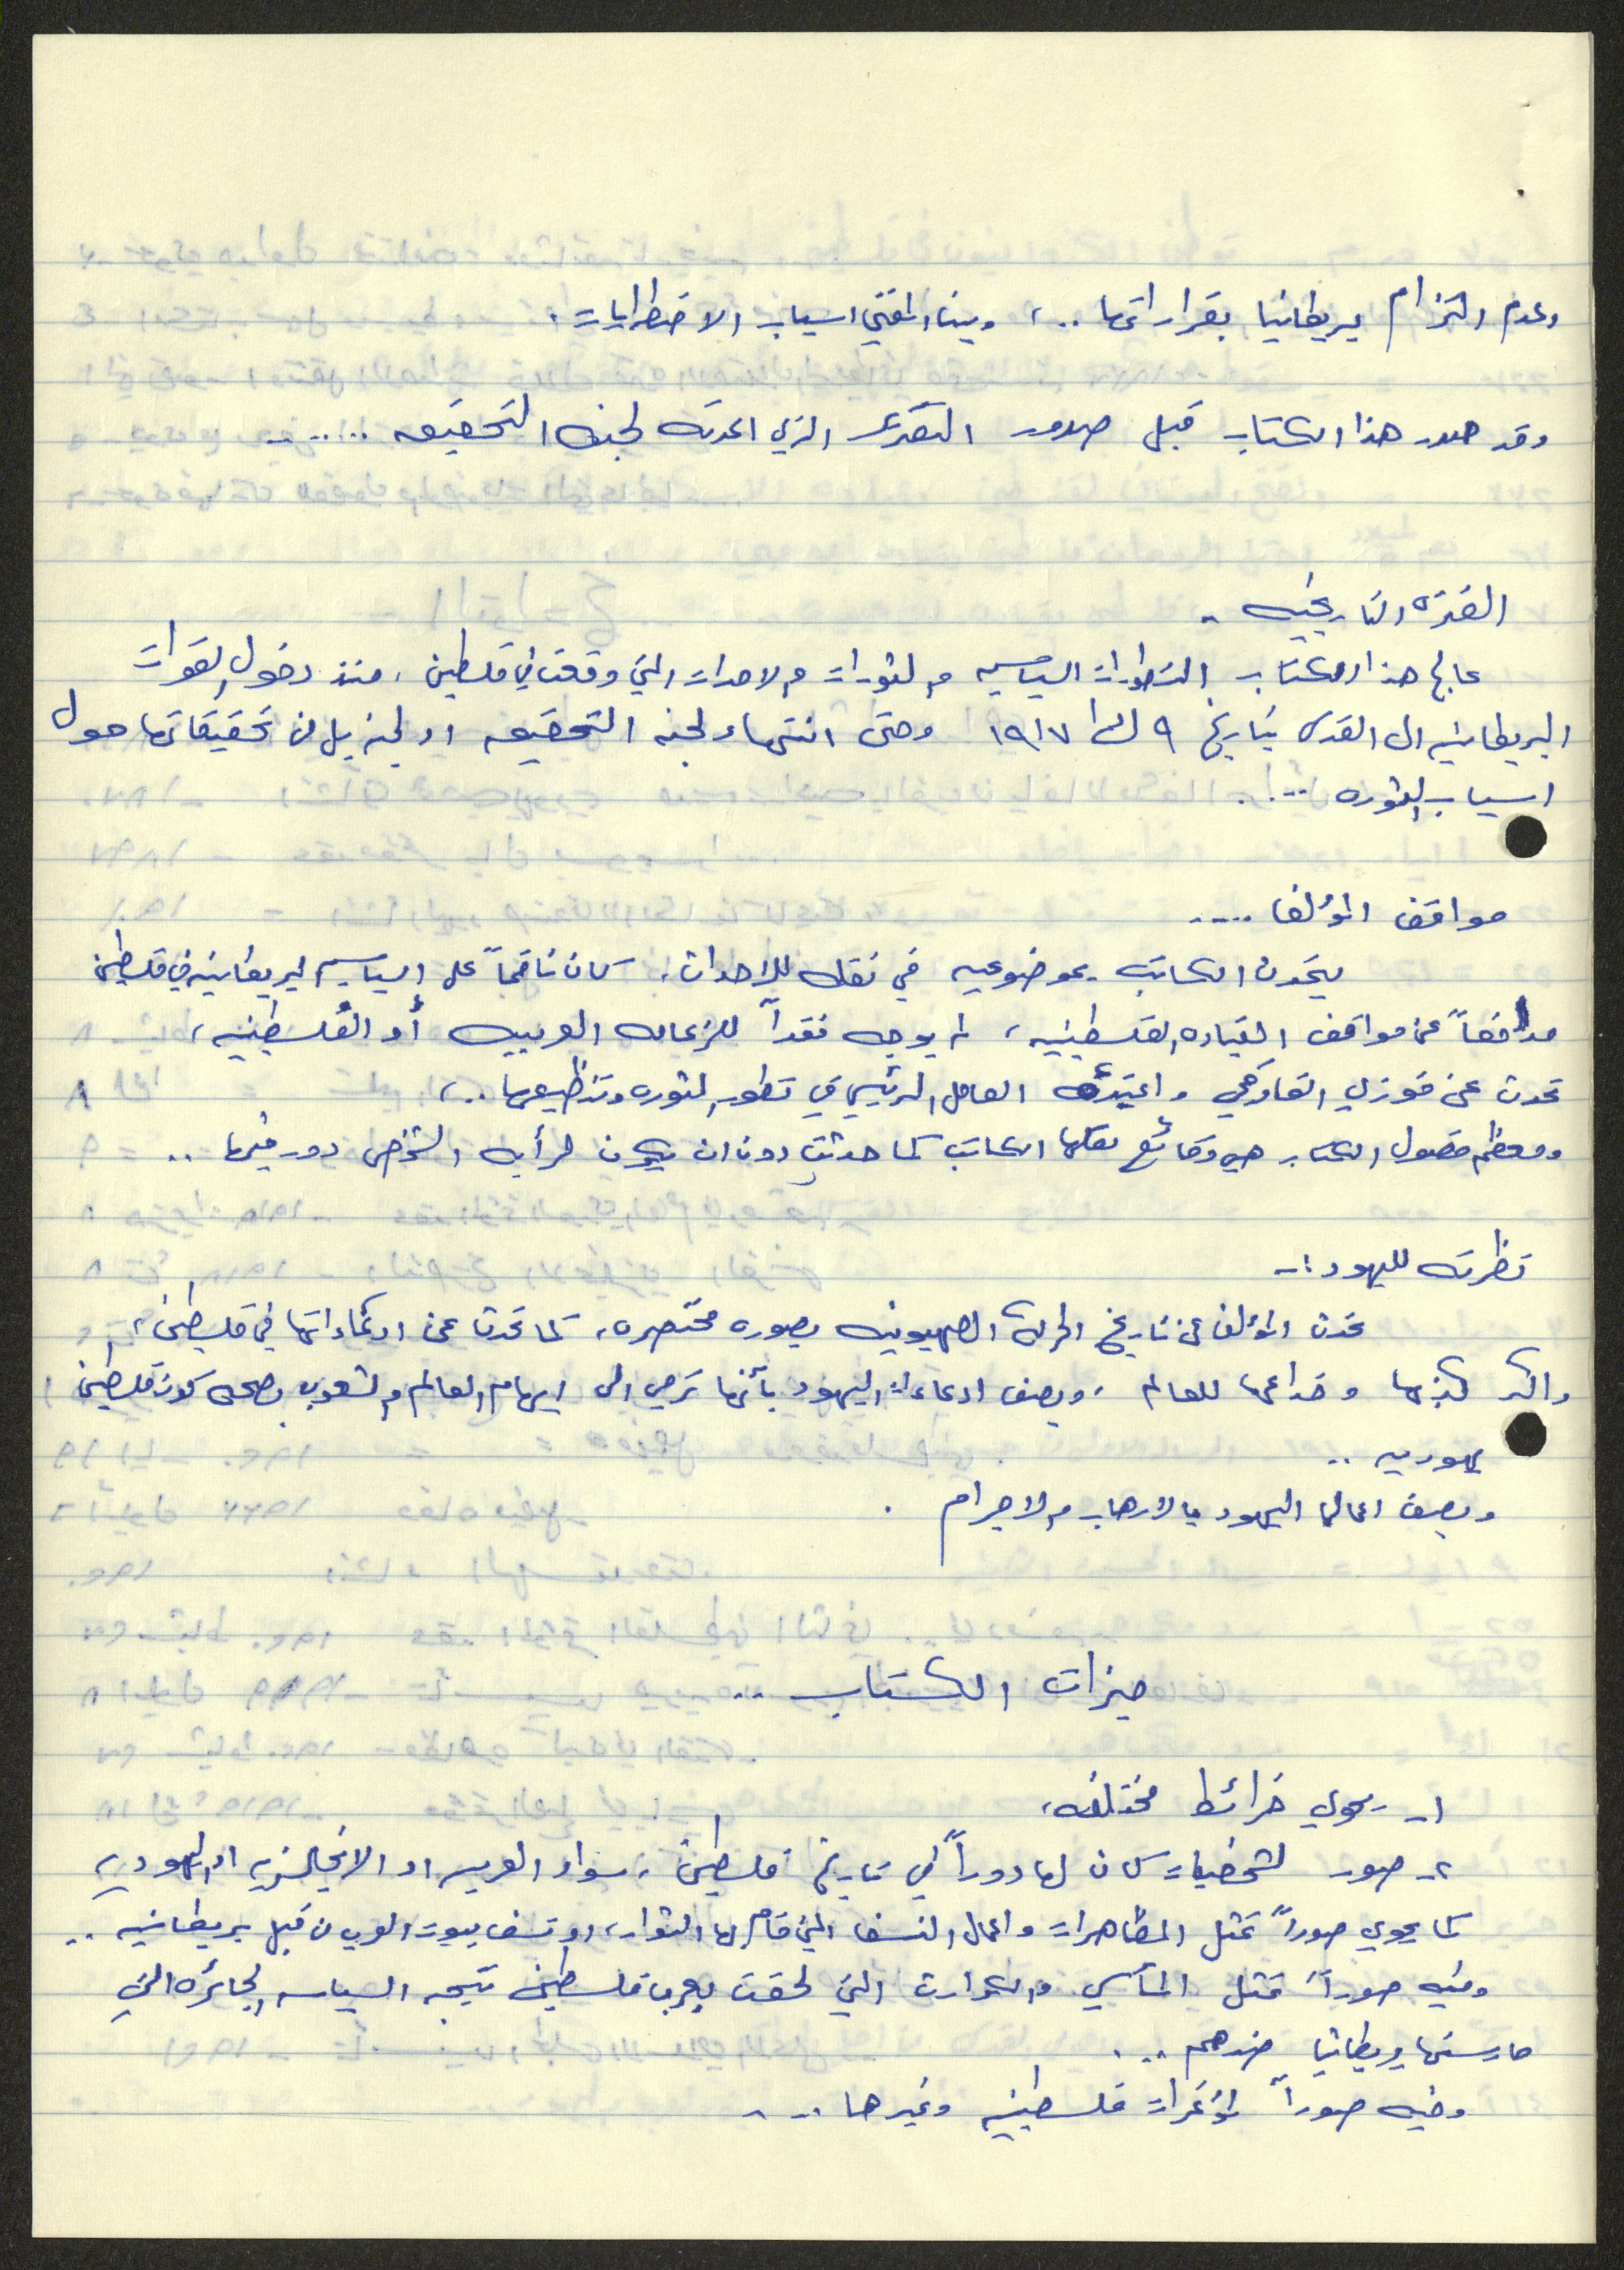 وعدم التزام بريطانيا بقراراتها ..، وبين المفتي اسباب الاضطرابات.
وقد صدر هذا الكتاب قبل صدور التقرير الذي اعدته لجنة التحقيق .....
الفترة التاريخيه -
عالج هذا الكتاب التطورات السياسيه والثورات والاحداث التي وقعت في فلسطين، منذ دخول القوات
البريطانيه الى القدس بتاريخ ٩ ك١ ١٩١٧ وحتى انتهاء لجنه التحقيق او لجنه بل من تحقيقاتها حول
اسباب الثوره ...
مواقف المؤلف ....
يتحدث الكاتب بموضوعيه في نقله للاحداث، كان ناقماً على السياسه البريطانيه في فلسطين
مدافعاً عن مواقف القياده الفلسطينيه، لم يوجه نقداً للزعامه العربيه أو الفلسطينيه،
تحدث عن فوزي القاوقجي واعتبره العامل الرئيسي في تطور الثوره وتنظيمها ..،
ومعظم فصول الكتاب هي وقائع نقلها الكاتب كما حدثت دون ان يكون لرأيه الشخصي دور فيها ..
نظرته لليهود :-
تحدث المؤلف عن تاريخ الحركه الصهيونيه بصوره مختصره، كما تحدث عن ادعاءاتها في فلسطين،
واكد كذبها وخداعها للعالم، ويصف ادعاءات اليهود بأنها ترمي الى ايهام العالم والشعوب بصحه كون فلسطين
يهوديه ..
ويصف اعمال اليهود بالارهاب والاجرام .
ميزات الكتاب ..
١- يحوي خرائط مختلفه،
٢- صور لشخصيات كان لها دوراً في تاريخ فلسطين، سواء العربيه او الانجليزيه او اليهوديه
كما يحوي صوراً تمثل المظاهرات واعمال النسف التي قام بها الثوار، او نسف بيوت العرب من قبل بريطانيه ..
وفيه صوراً تمثل المآسي والكوارث التي لحقت بعرب فلسطين نتيجه السياسه الجائره التي
مارستها بريطانيا ضدهم ...
وفيه صوراً لمؤتمرات فلسطينيه وغيرها ...